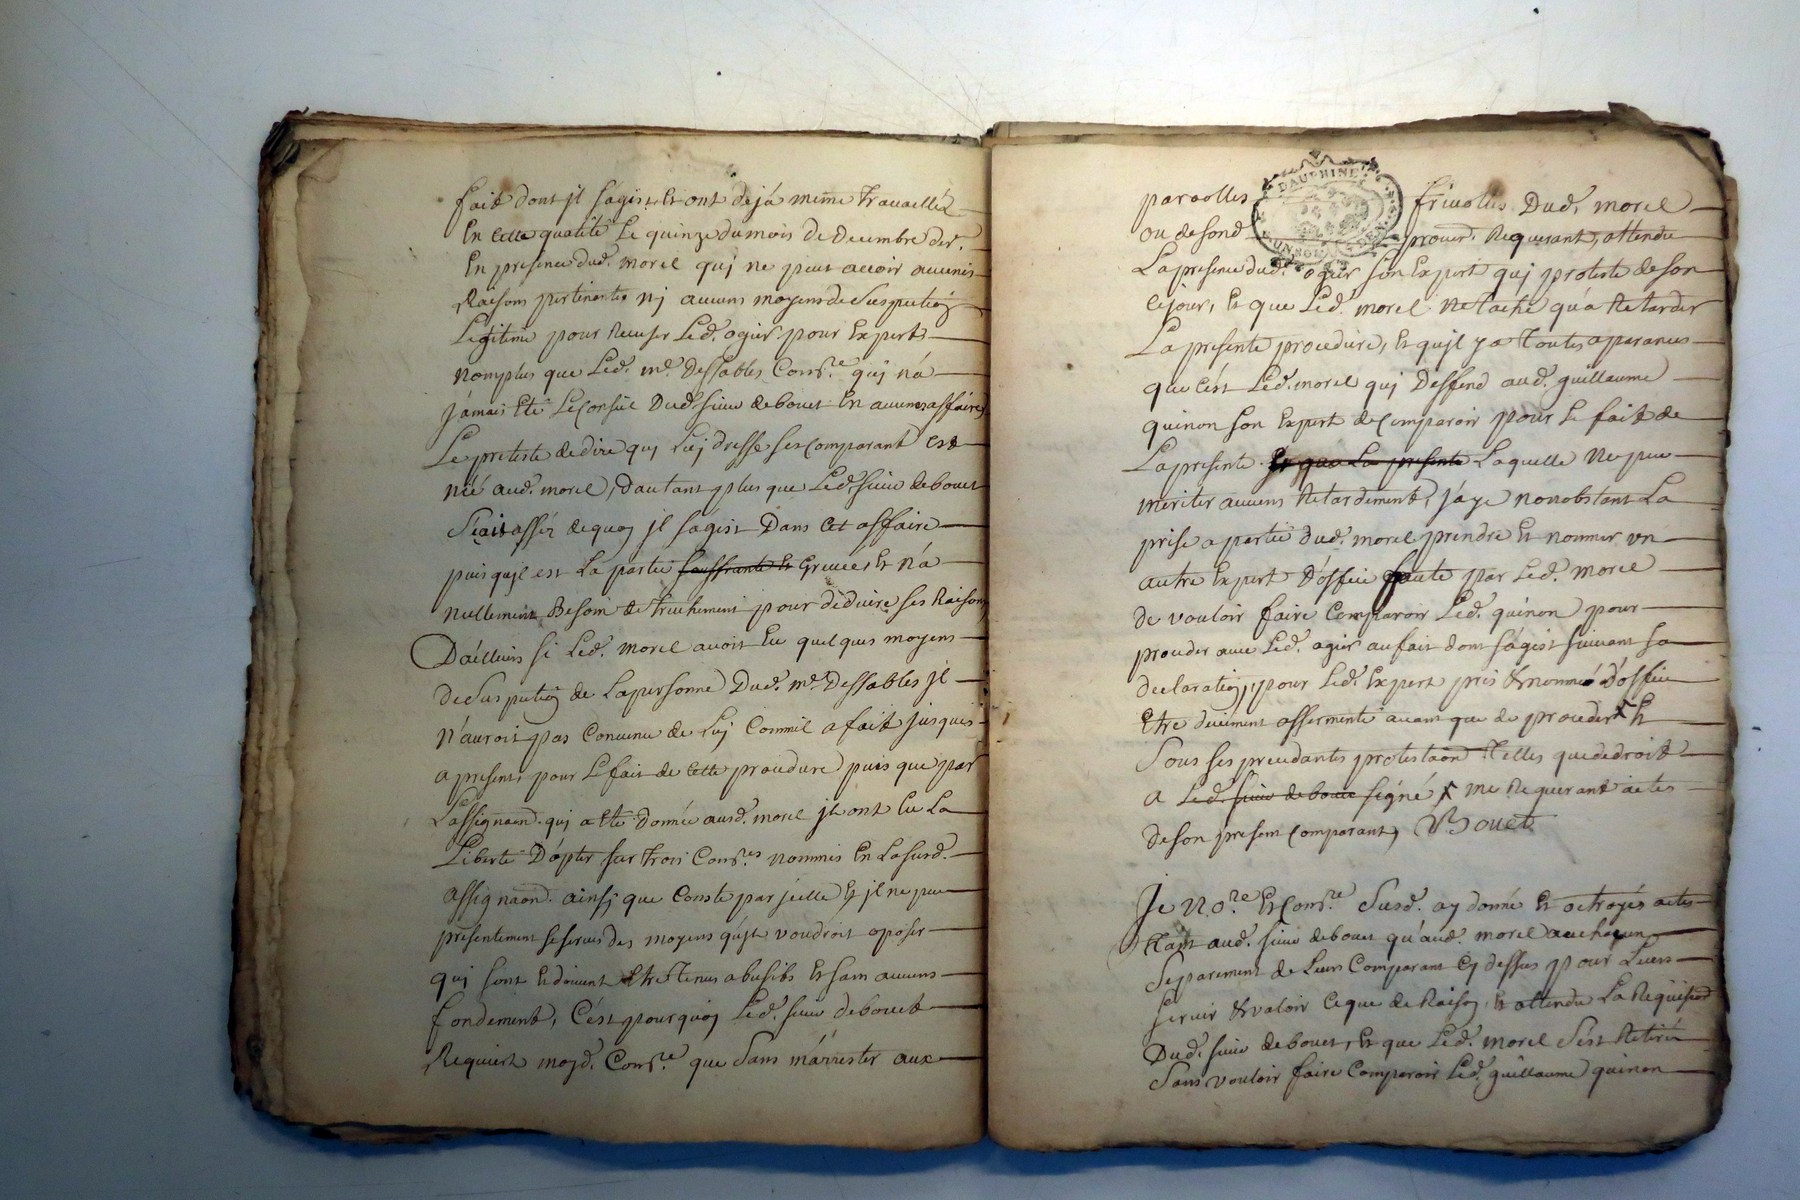 fait dont jl sâgist Et ont dejá même travaillés
En cette qualité Le quinze du mois de Decembre der.
En presence dud. morel quj ne peut avoir aucunes
Raisons pertinantes nj aucuns moyens de Suspection
Legitime pour Recuser Led. ogier pour Expert
nomplus que Led. me. Dessables Comre. quj n'á
jámais Eté Le Conseil Dud. sieur debouet En aucunes affaires
Le preteste de dire quj luj dresse ses comparant est
nié aud. morel, dautant plus que Led. sieur debouet
Scait assés de quoy jl sâgist Dans Cet affaire
puis qujl est La partie souffrante Et Grevée, Et n'á
nullement Besoin de truchement pour déduire ses Raisons
D'ailleurs si Led. morel avoit Eu quelques moyens
de Suspection de La personne Dud. me. Dessables jl
n'auroit pas Convenu de Luj Comme il a fait jusques
a present, pour Le fait de Cette procedure puis que par
L'assignaon. quj a été donnée ausd. morel jls ont Eu La
Liberté D'ópter sur trois Comres nommés En La susd.
assignaon. ainsj que Conste par jcelle Et jl ne peut
présentement se servir des moyens qu'jl voudroit oposer
quj sont Et doivent Etre tenus abusifs Et sans aucuns
fondement, C'ést pourquoy Led. sieur debouet
Requiert moyd. Comre. que Sans m'árrester aux
parolles frivolles Dud. morel
DAUPHINE
ou de fond proced. Requerant, attendu
La presence dud. ogier son Expert quj proteste de son
sejour, Et que Led. morel ne tache qu'a Retarder
La presente procedure, Et qujl y a toutes aparances
que c'ést Led. morel quj Deffend aud. guillaume
quinon son Expert de Comparoir pour Le fait de
La presente Et que La presente Laquelle ne peut
meriter aucuns Retardement, j'aye nonobstant La
prise a partie dud. morel prendre Et nommer un
autre Expert D'óffice faute par Led. morel
de vouloir faire Comparoir Led. quinon pour
proceder avec Led. ogier au fait dont s'ágist suivant sa
declaration, pour Led. Expert pris & nommé D'óffice
Etre duëment assermenté avant que de proceder Et
Sous ses precedantes protestaon. telles que de droit
A Led. sieur de bouet signé me Requerant actes
de son present Comparant, Bouet
Je No.re Et Comre. Susd. ay donné Et octroyés actes
tant aud. sieur debouet qu'aud. morel a un chacun
Separement de Leurs Comparant Cy dessus pour Leurs
servir & valoir Ce que de Raison, Et attendu La Requisiond
Dud. sieur debouet, Et que Led. morel s'ést Retiré
Sans vouloir faire Comparoir Led. guillaume quinon